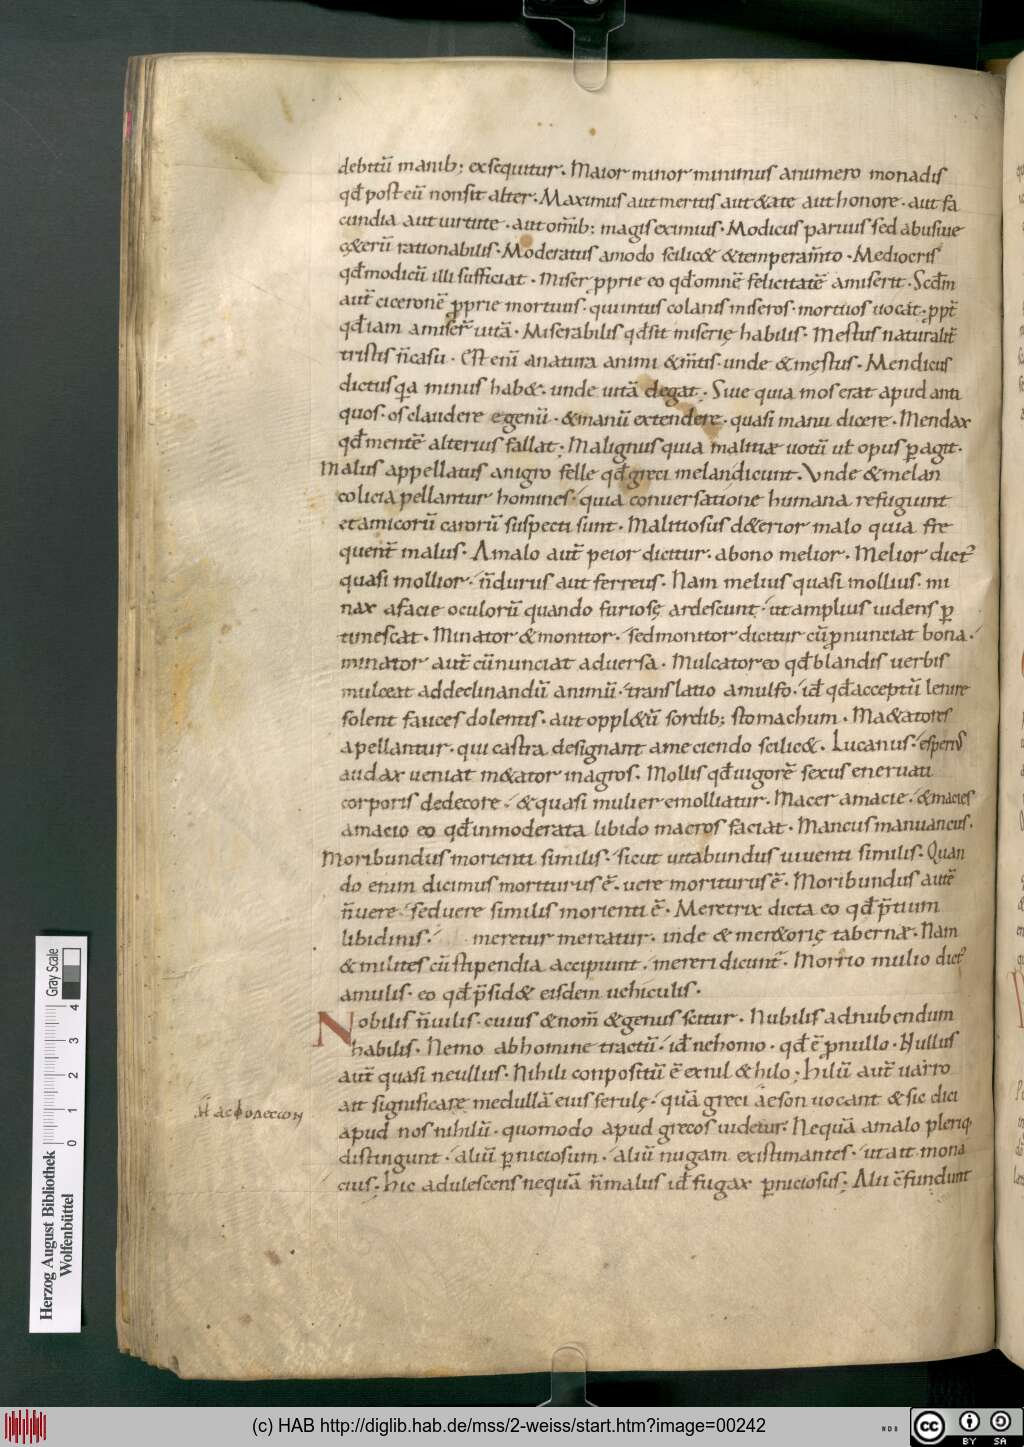 debitũ manib; exsequitur. Maior minor minimus anumero monadis
qđ post eũ nonsit alter. Maximus aut meritis aut &ate aut honore. aut fa
cundia aut uirtute. aut om̃ib: magis eximius. Modicus paruus sed abusiue
c&erũ rationabilis. Moderatus amodo scilic& &temperam̃to. Mediocris
qđ modicũ illi sufficiat. Miser p̱prie eo qđ omnẽ felicitatẽ amiserit. Scđm
aut̃ ciceronẽ p̱prie mortuus. qui intus colanis miseros. mortuos uocat. p̱pt̃
qđ iam amiser̃ uitã. Miserabilis qđ sit miserię habilis. Mestus naturalit̃
tristis ñ casu. Est enĩ anatura animi &m̃tis. unde &męstus. Mendicus
dictus q̣a minus hab&. unde uitã degat; Siue quia mos erat apud anti
quos. os claudere egenũ. &manũ extendere. quasi manu dicere. Mendax
qđ mentẽ alterius fallat; Malignus quia malitiæ uotũ uł opus p̱agit.
Malus appellatus anigro felle qđ greci melan dicunt. Vnde &melan
colici apellantur homines. quia conuersatione humana refugiunt
et amicorũ carorũ suspecti sunt. Malitiosus d&erior malo quia fre
quent̃ malus. Amalo aut̃ peior dicitur. abono melior. Melior dict̃
quasi mollior. ñ durus aut ferreus. Nam melius quasi mollius. mi
nax afacie oculorũ quando furiosę ardescunt. ut amplius uidens p̱
timescat. Minator &monitor. sed monitor dicitur cũ p̱nunciat bona.
minator aut̃ cũ nunciat aduersa. Mulcator eo qđ blandis uerbis
mulceat addeclinandũ animũ. translatio amulso. iđ qđ acceptũ lenire
solent fauces dolentis. aut oppl&ũ sordib; stomachum. Ma&atores
apellantur. qui castra designant ame ciendo scilic&. Lucanus. esperios
audax ueniat m&ator inagros. Mollis qđ uigorẽ sexus eneruati
corporis dedecore. &quasi mulier emolliatur. Macer amacie. &macies
amacio eo qđ inmoderata libido macros faciat. Mancus manuancus.
Moribundus morienti similis. sicut uitabundus uiuenti similis. Quan
do enim dicimus moriturus ẽ. uere moriturus ẽ. Moribundus autẽ
ñ uere. sed uere similis morienti ẽ. Meretrix dicta eo qđ p̃tium
libidinis. meretur mercatur. inde & mer&orię tabernæ. Nam
& milites cũ stipendia accipiunt. mereri dicunt̃. Morrio mulio dict̃
amulis. eo qđ p̃sid& eisdem uehiculis.
Nobilis ñ uilis. cuius &nom̃ &genus scitur. Nubilis adnubendum
habilis. Nemo abhomine tractũ. iđ nehomo. qđ ẽ p̱nullo. Nullus
aut̃ quasi neullus. Nihili conpositũ ẽ exnil &hilo; hilũ aut̃ uarro
ait significare medullã eius ferulę. quã greci aeson uocant & sic dici
apud nos nihilũ. quomodo apud grecos uidetur. Nequã amalo pleriq;
distingunt. aliũ p̱niciosum. aliũ nugam existimantes. ut ait mona
cius; hic adulescens nequã ñ malus iđ fugax p̱niciosus; Alii c̃fundunt
(c) HAB http://diglib.hab.de/mss/2-weiss/start.htm?image=00242
Herzog August Bibliothek
Wolfenbüttel
Gray Scale
0 1 2 3 4
NDB
cc
BY SA